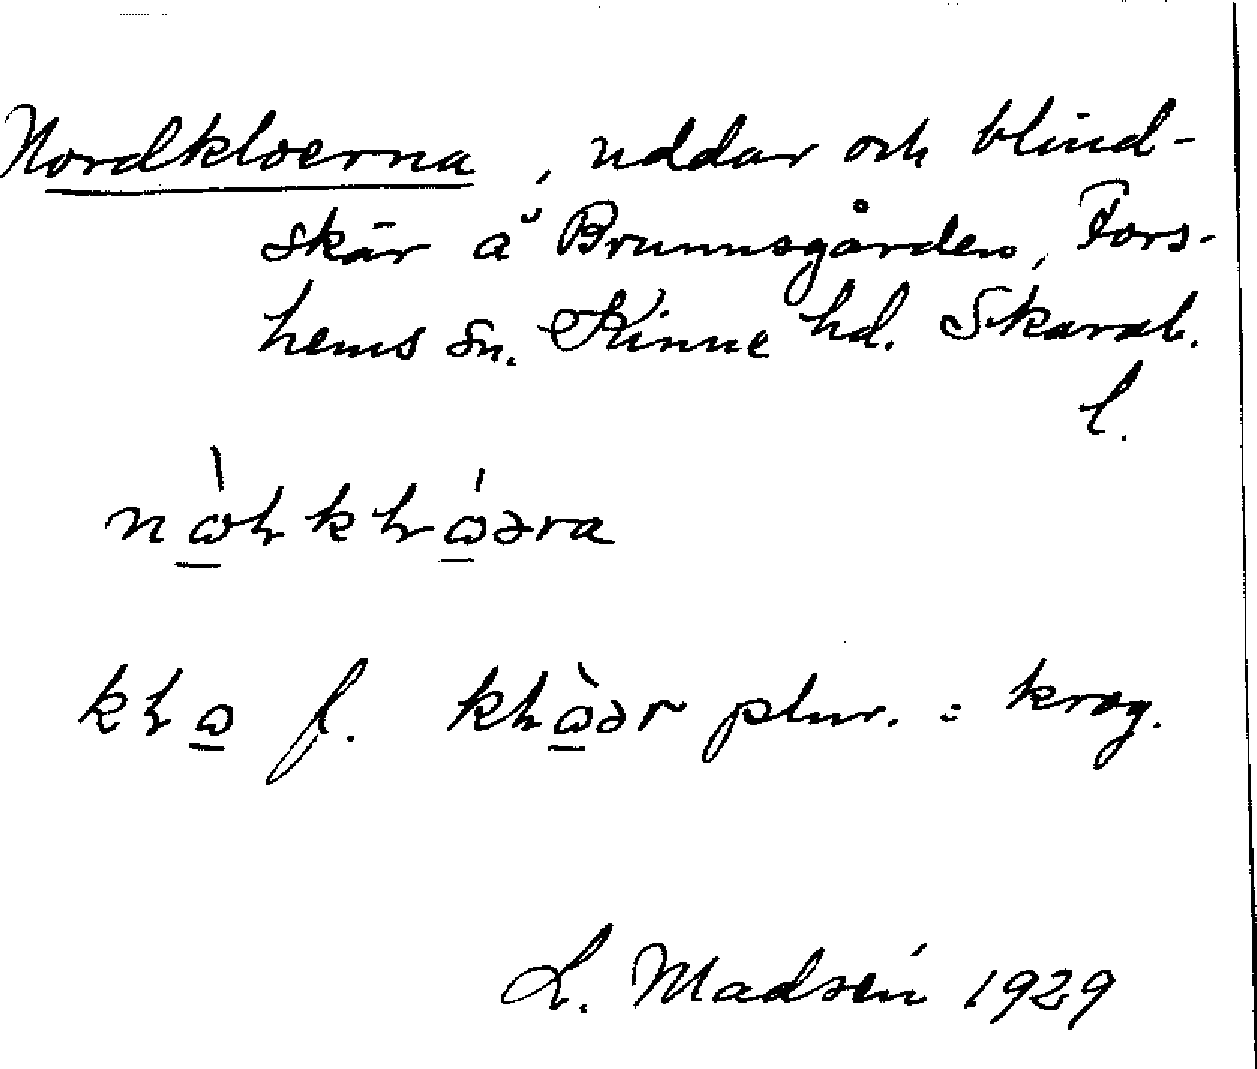 Nordkloerna, uddar och blind-
skär å Brunnsgården, Fors-
hems sn. Kinne hd. Skarab.
l.
f. plur. = krog.
L. Madsén 1929